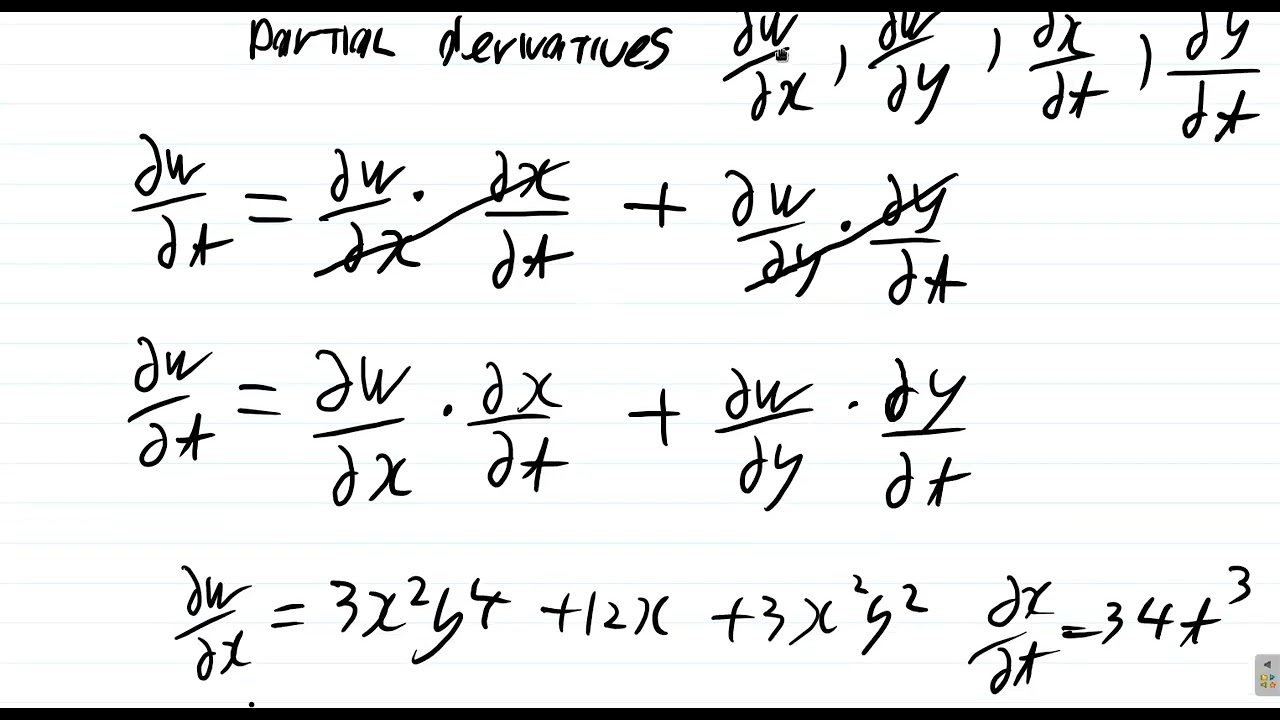 Partial derivatives ∂w/∂x, ∂w/∂y, ∂x/∂t, ∂y/∂t
∂w/∂t = ∂w/∂x · ∂x/∂t + ∂w/∂y · ∂y/∂t
∂w/∂t = ∂w/∂x · ∂x/∂t + ∂w/∂y · ∂y/∂t
∂w/∂x = 3x²y⁴ + 12x + 3x²y² ∂x/∂t = 34t³